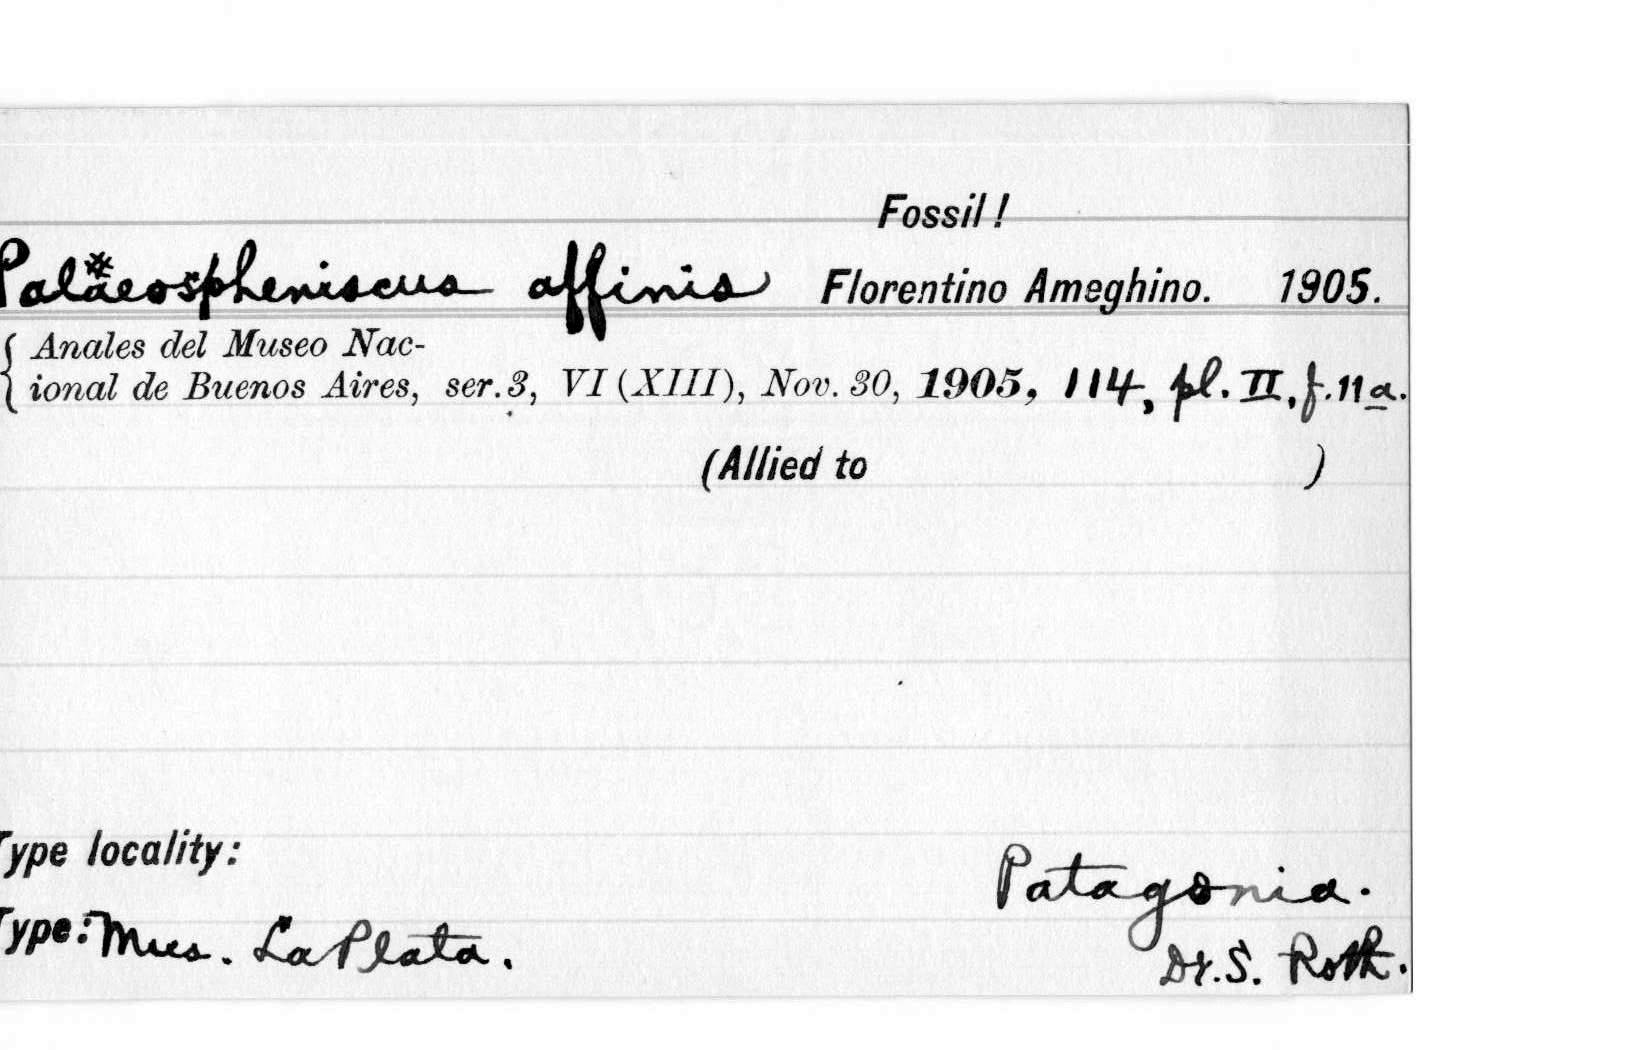 Fossil!
Palaeospheniscus affinis Florentino Ameghino. 1905.
{ Anales del Museo Nac-
ional de Buenos Aires, ser. 3, VI (XIII), Nov. 30, 1905, 114, pl. II, f. 11a.
(Allied to )
Type locality: Patagonia.
Type: Mus. La Plata. Dr. S. Roth.